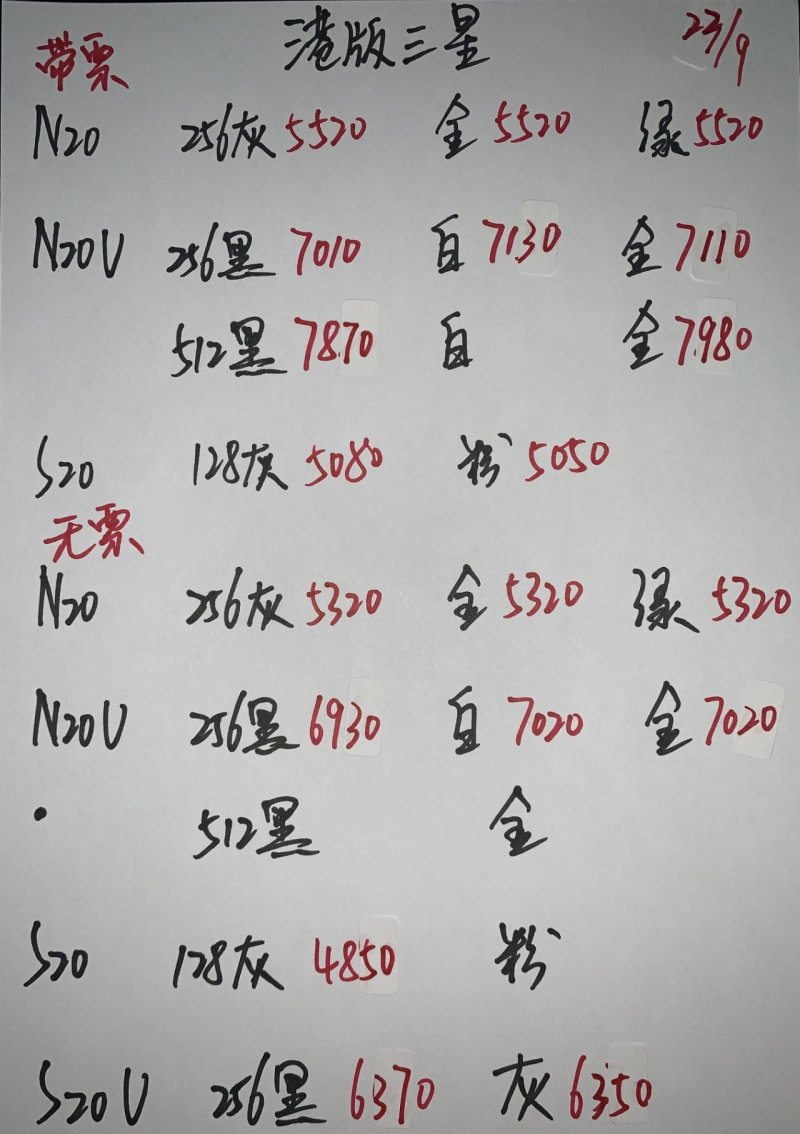 港版三星 23/9
带票
N20 256灰 5520 金 5520 绿 5520
N20U 256黑 7010 白 7130 金 7110
512黑 7870 白 金 7980
S20 128灰 5080 粉 5050
无票
N20 256灰 5320 金 5320 绿 5320
N20U 256黑 6930 白 7020 金 7020
512黑 金
S20 128灰 4850 粉
S20U 256黑 6370 灰 6350